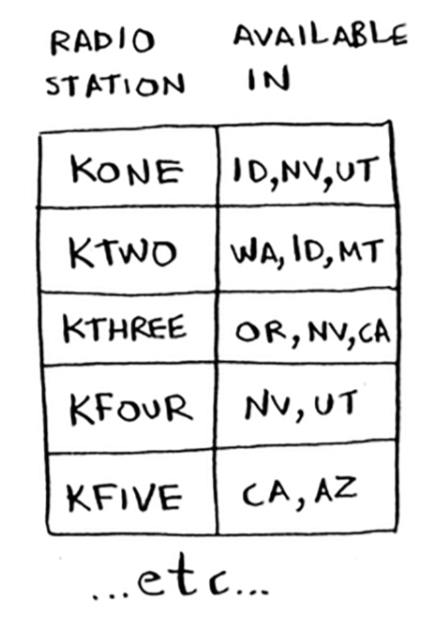 RADIO STATION AVAILABLE IN
KONE ID,NV,UT
KTWO WA,ID,MT
KTHREE OR,NV,CA
KFOUR NV,UT
KFIVE CA,AZ
...etc...